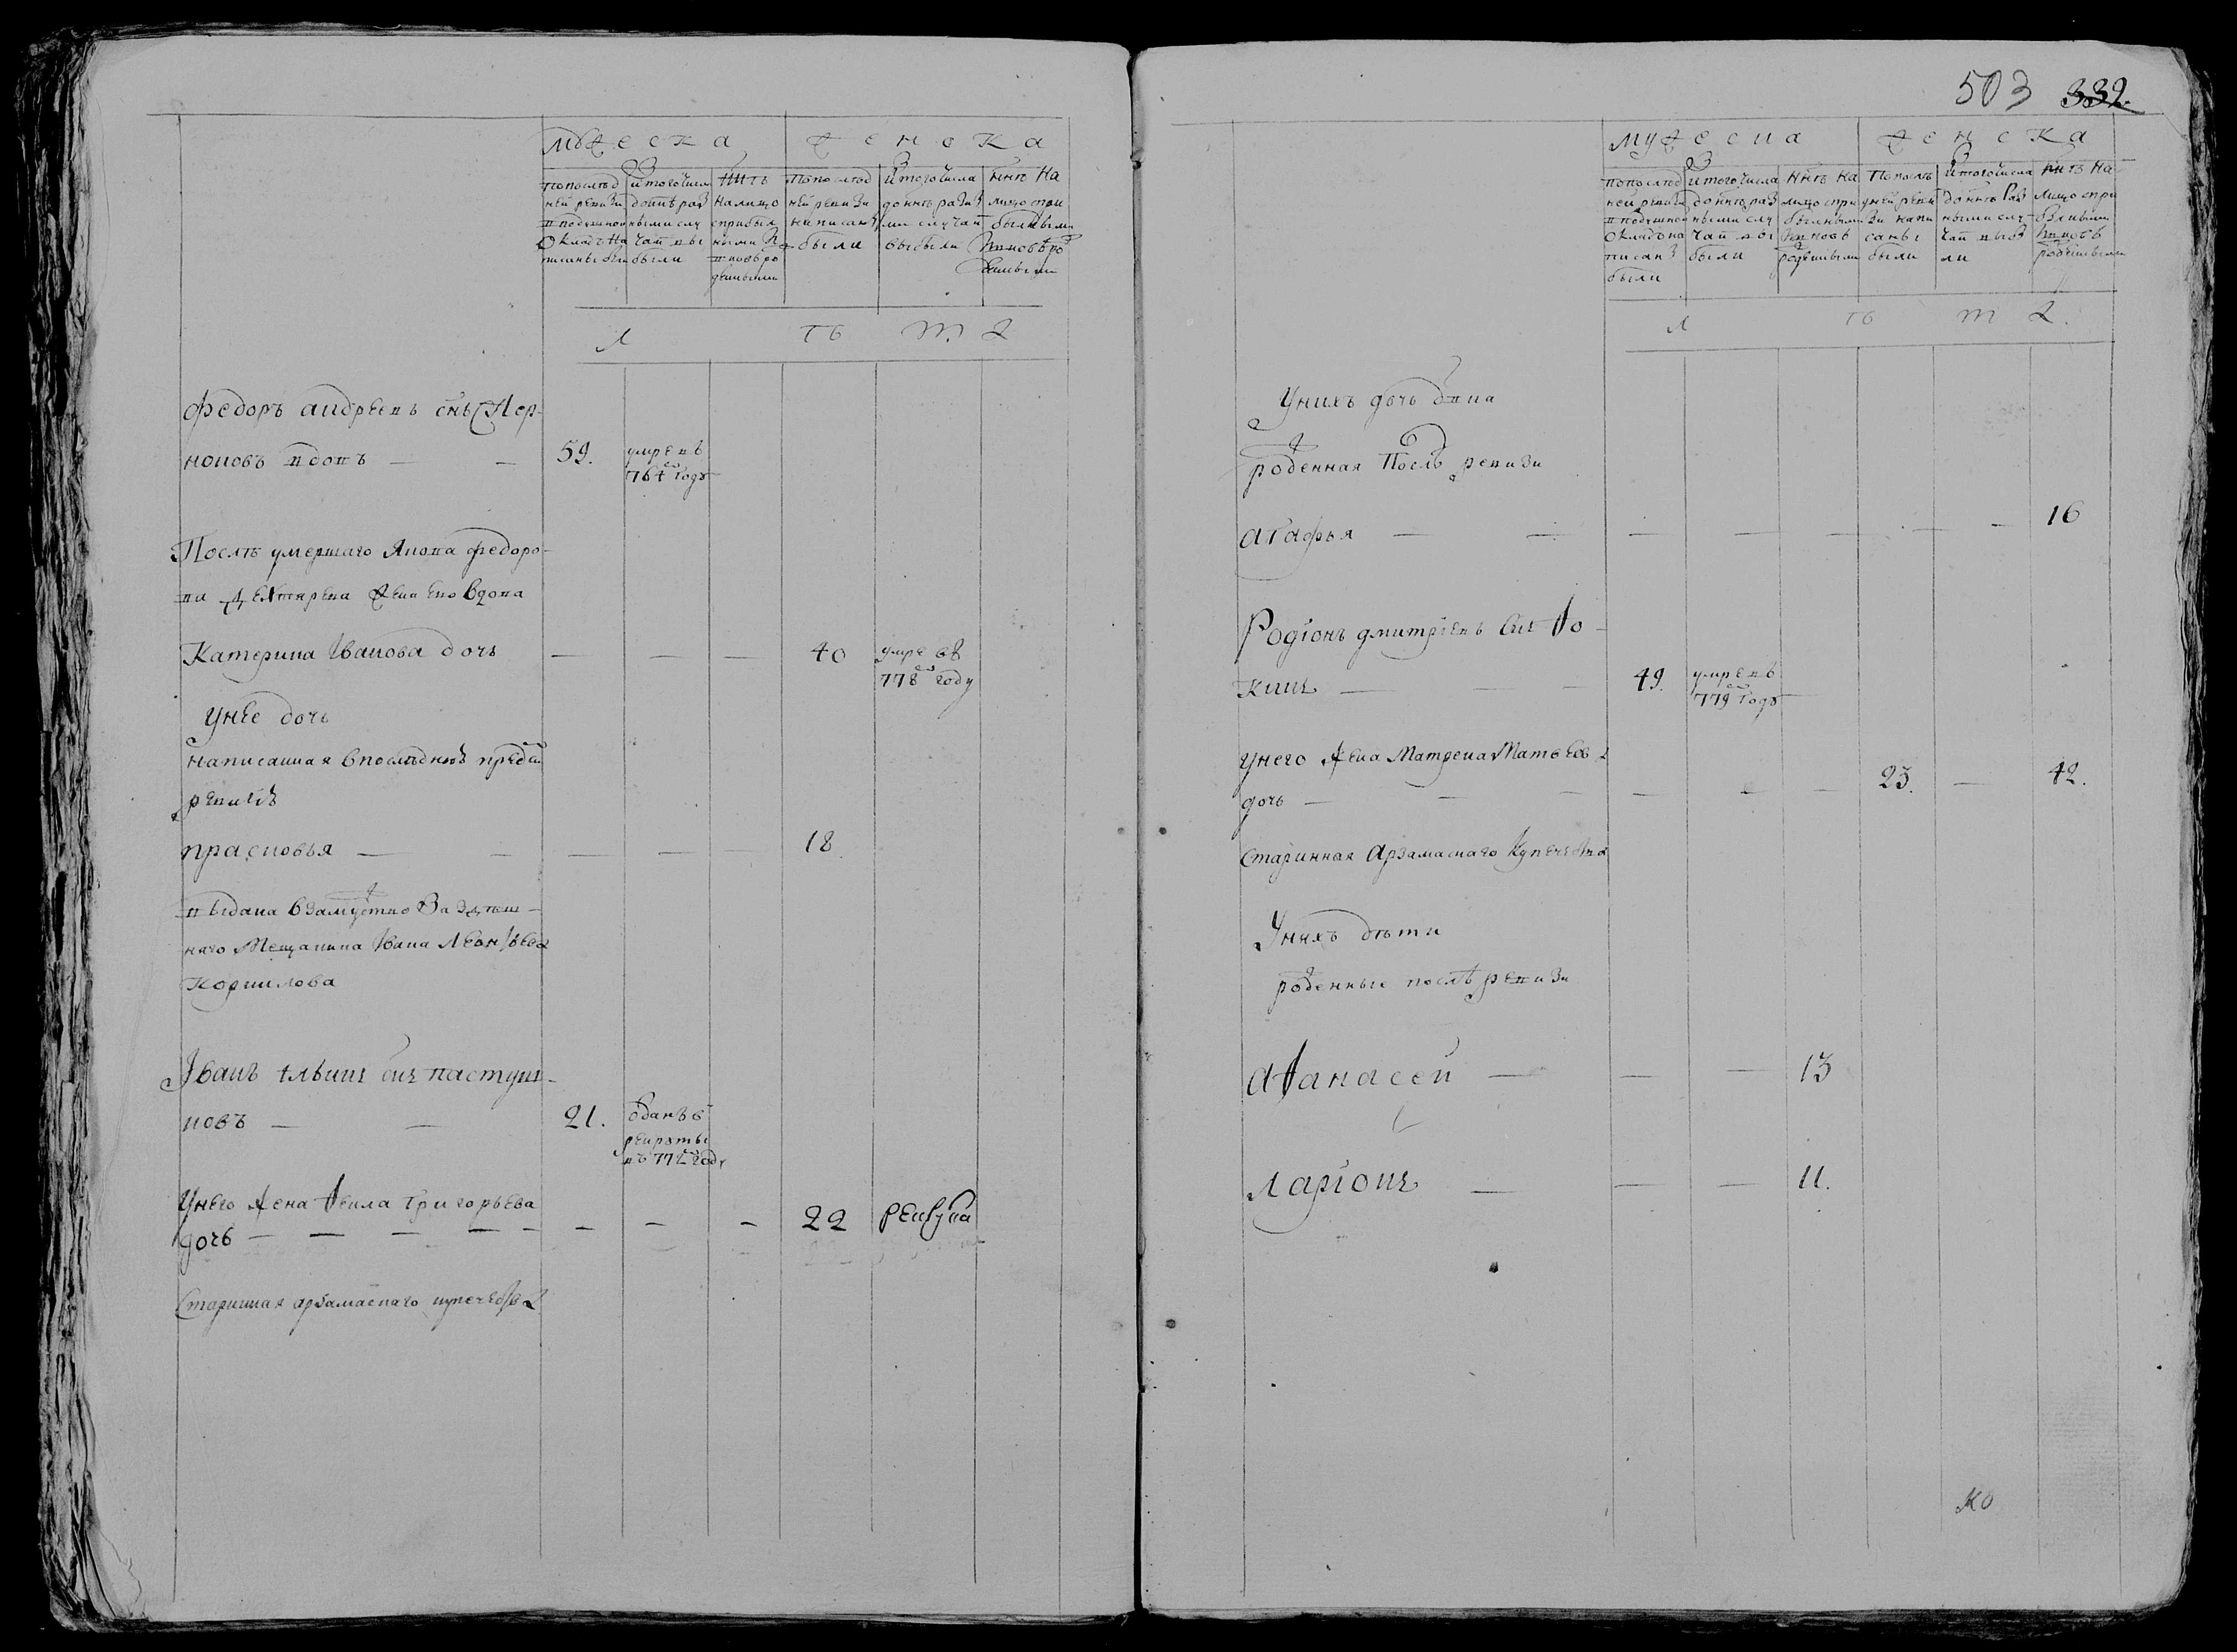 мужеска
женска
попослѣд
ней ревизи
вподушной
окладъ на
писаны были
изтого числа
донынѣ раз
ными слу
чаи вы
были
ннѣ
налицо
сприбыл
ными и
вновь ро
жденными
Попослѣд
ней ревизи
написаны
были
изтого числа
донынѣ разны
ми случаи
выбыли
ннѣ на
лицо при
былыми
ивновь ро
жденными
лѣта
Федоръ андреевъ снъ Чер-
ноковъ вдовъ — — 59. умре въ
764м году
Послѣ умершаго Якова федоро-
ва Дехтярева жена ево вдова
Катерина Іванова дочь — — — 40 умре въ
778м году
унее дочь
написанная впослѣднюю предъ сей
ревизiю
прасковья — — — — — 18.
выдана взамужство За здѣш-
няго мещанина Ивана Леонтьева
Корнилова
Іванъ ильинъ снъ пастуш-
ковъ — — 21. отданъ в
рекруты
въ 772м году
Унего жена Ѳекла григорьева
дочь — — — — — — — — 22
Старинная арзамаскаго купечества
503 332.
мужеска
женска
попослѣд
ней ревизи
вподушной
окладъ на
писаны
были
изтого числа
донынѣ раз
ными слу
чаи вы
были
ннѣ на
лицо спри
былыми
ивновь
рожденными
Попослѣ
дней реви
зи напи
саны
были
изтого числа
донынѣ раз
ными слу
чаи выбы
ли
ннѣ на
лицо спри
былыми
ивновь
рожденными
лѣта
Унихъ дочь двка
рожденная Послѣ ревизи
агафья — — — — — — — 16
Родiонъ дмитрiевъ снъ Ѳо-
кинъ — — — 49. умре въ
779м году
унего жена Матрена Матвеева
дочь — — — — — — 23. — 42.
Старинная арзамаскаго купечества
Унихъ дѣти
рожденные послѣ ревизи
аѲанасей — — — 13
ларiонъ — — — 11.
ко